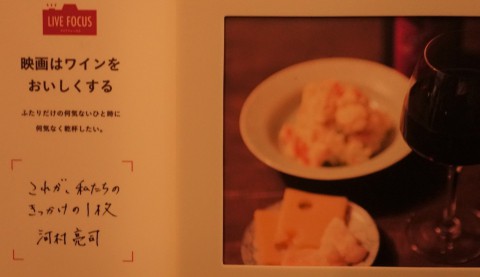 LIVE FOCUS
映画はワインを
おいしくする
ふたりだけの何気ないひと時に
何気なく乾杯したい。
これが、私たちの
きっかけの1枚
河村 亮司